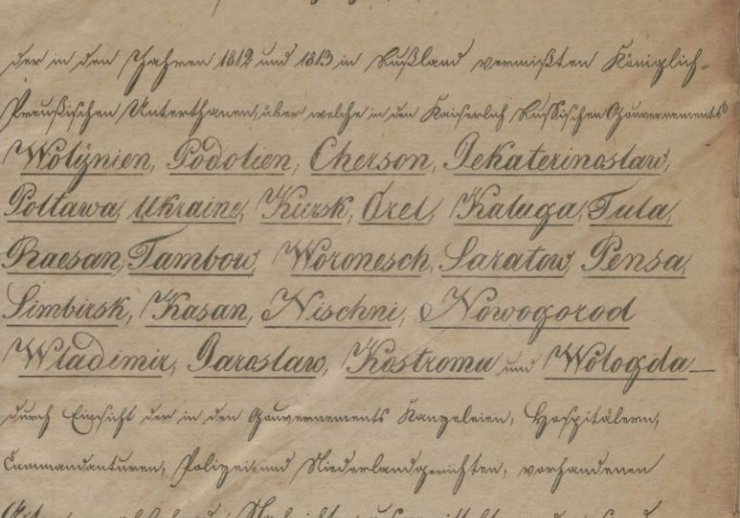 der in den Jahren 1812 und 1813 in Rußland vermißten Königlich-
Preußischen Unterthanen, über welche in den Kaiserlich Russischen Gouvernements
Wolÿnien, Podolien, Cherson, Jekaterinoslaw,
Poltawa, Ukraine, Kursk, Orel, Kaluga, Tula,
Raesan, Tambow, Woronesch, Saratow, Pensa,
Simbirsk, Kasan, Nischni, Nowogorod
Wladimir, Jaroslaw, Kostroma und Wologda
durch Einsicht der in den Gouvernements Kanzeleien, Hospitälern,
Commandanturen, Polizei und Niederlandgerichten, vorhandenen